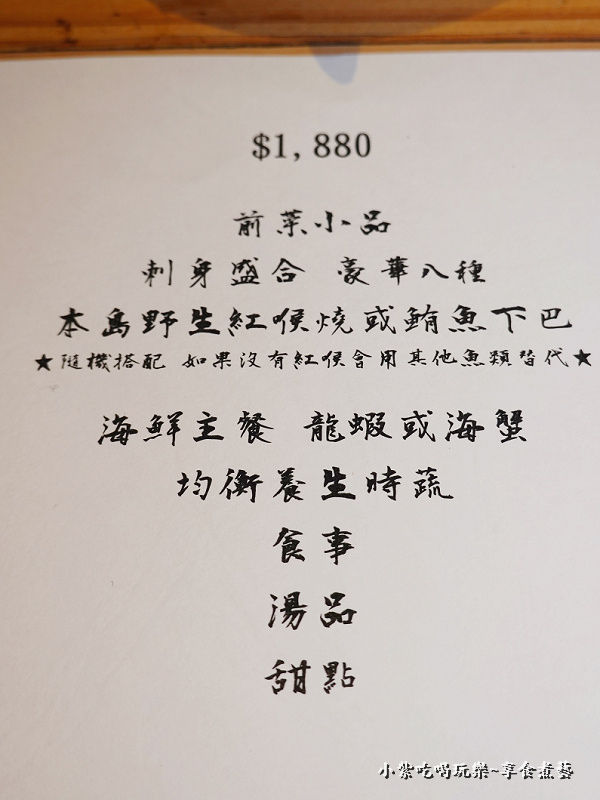 $1,880
前菜小品
刺身盛合 豪華八種
本島野生紅喉燒或鮪魚下巴
★隨機搭配 如果沒有紅喉會用其他魚類替代★
海鮮主餐 龍蝦或海蟹
均衡養生時蔬
食事
湯品
甜點
小紫吃喝玩樂~享食煮藝